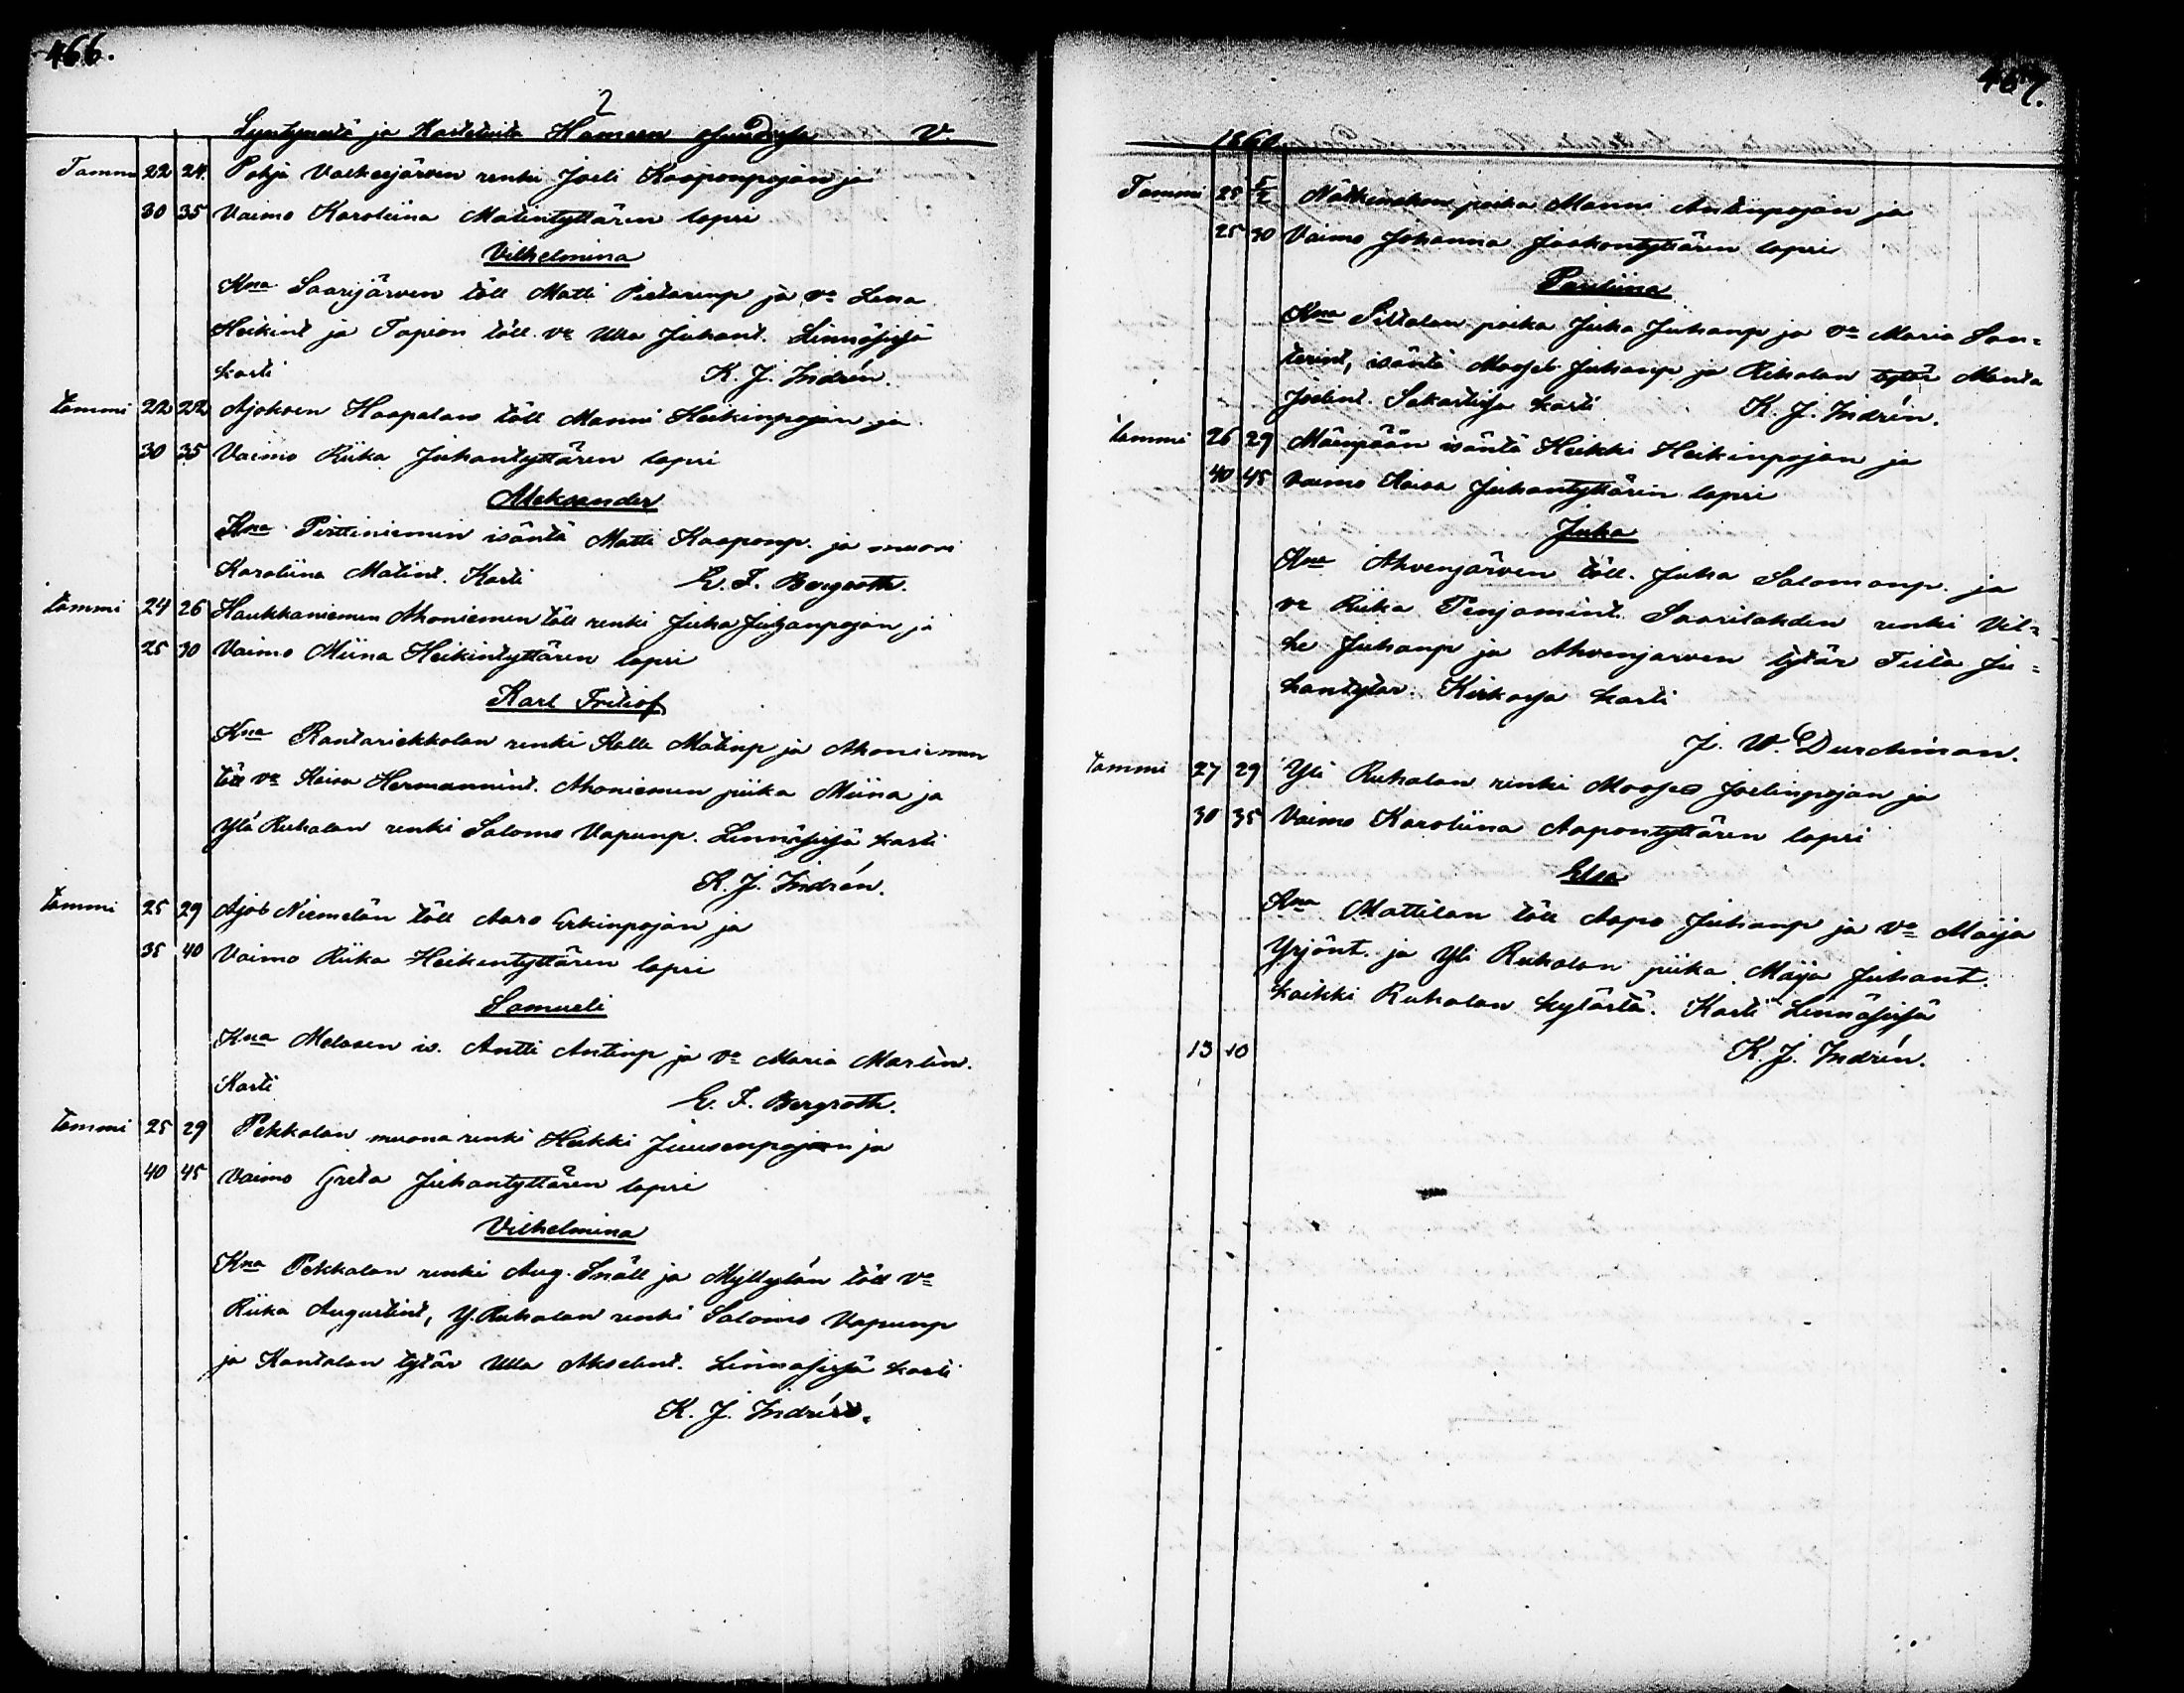 466.
2
Syntyneitä ja Kastetuita Hämeen V.
Tammi 22 24. Pohja Valkeejärven renki Joeli Kaaponpojan ja
30 35 Vaimo Karoliina Matintyttären lapsi
Vilhelmina
Kna Saarijärven töll Matti Pietarinp ja va Lena
Heikint ja Tapion töll. va Ulla Juhant. Linnäsissä
kasti K. J. Indrén.
tammi 22 22 Ajoksen Haapalan töll Manni Heikinpojan ja
30 35 Vaimo Riika Juhantyttären lapsi
Aleksander
Kna Pirttiniemin isäntä Matti Kaaponp. ja muori
Karoliina Matint. Kasti E. F. Bergroth.
tammi 24 26 Haukkaniemen Ahoniemen töll renki Juha Juhanpojan ja
25 30 Vaimo Miina Heikintyttären lapsi
Karl Fritiof
Kna Rantariekkolan renki Kalle Matinp ja Ahoniemen
töll va Kaisa Hermannint. Ahoniemen piika Miina ja
Ylä Ruhalan renki Salomo Vapunp. Linnäsissä kasti
K. J. Indrén.
tammi 25 29 Ajos Niemelän töll Aaro Erkinpojan ja
35 40 Vaimo Riika Heikintyttären lapsi
Samueli
Kna Melasen is. Antti Antinp ja va Maria Martin.
Kasti E. F. Bergroth.
tammi 25 29 Pekkalan muona renki Heikki Juusenpojan ja
40 45 Vaimo Greta Juhantyttären lapsi
Vilhelmina
Kna Pekkalan renki Aug. Snäll ja Myllylän töll va
Riika Augustint, Y. Ruhalan renki Salomo Vapunp
ja Kantalan tytär Ulla Akselint. Linnäsissä kasti
K. J. Indrén.
467.
1860.
Tammi 25 5/2 poika Manni Antinpojan ja
25 30 Vaimo Johanna Jaakontyttären lapsi
Pauliina
Kna Pittalan poika Juha Juhanp ja va Maria San=
terint, isäntä Mooses Juhanp ja Rihalan tytär Manta
Joelint. Sakastissa kasti K. J. Indrén.
tammi 26 29 Mäenpään isäntä Heikki Heikinpojan ja
40 45 Vaimo Kaisa Juhantyttären lapsi
Juha
Kna Ahvenjärven töll. Juha Salomonp. ja
va Riika Penjamint. Saarilahden renki Vil=
he Juhanp ja Ahvenjarven tytär Tiita Ju=
hantytar. Kirkossa kasti
J. W. Durchman.
tammi 27 29 Yli Ruhalan renki Mooses Joelinpojan ja
30 35 Vaimo Karoliina Aapontyttären lapsi
Elsa
Kna Mattilan töll Aapo Juhanp ja va Maija
Yrjönt. ja Yli Ruhalan piika Maija Juhant.
kaikki Ruhalan kylästä. Kasti Linnäsissä
K. J. Indrén.
13 10